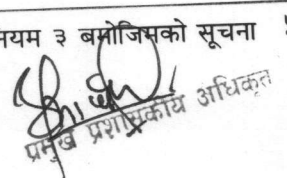 नियम ३ बमोजिमको सूचना
प्रमुख प्रशासकीय अधिकृत